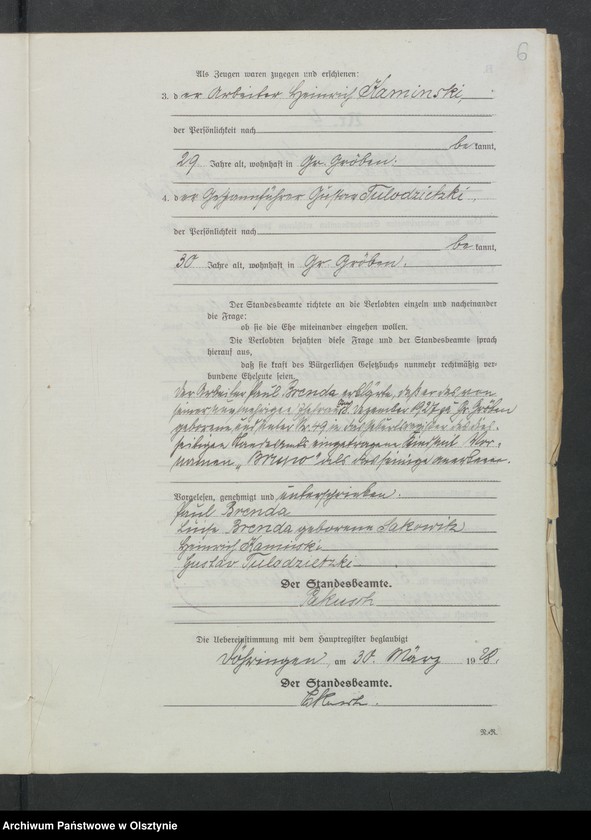 6
Als Zeugen waren zugegen und erschienen:
3. der Arbeiter Heinrich Kaminski,
der Persönlichkeit nach
be kannt,
29 Jahre alt, wohnhaft in Gr. Gröben.
4. der Gespannführer Gustav Tulodzietzki,
der Persönlichkeit nach
be kannt,
30 Jahre alt, wohnhaft in Gr. Gröben.
Der Standesbeamte richtete an die Verlobten einzeln und nacheinander
die Frage:
ob sie die Ehe miteinander eingehen wollen.
Die Verlobten bejahten diese Frage und der Standesbeamte sprach
hierauf aus,
daß sie kraft des Bürgerlichen Gesetzbuchs nunmehr rechtmäßig ver-
bundene Eheleute seien.
Der Arbeiter Paul Brenda erklärte, daß er das von
seiner nunmehrigen Ehefrau Dezember 1927 zu Gr. Gröben
geborene und unter Nr. 49 in das Geburtsregister des hie-
sigen Standesamts eingetragene Kind mit Vor-
namen „Bruno“ als das seinige anerkenne.
Vorgelesen, genehmigt und unterschrieben.
Paul Brenda
Luise Brenda geborene Sakowitz
Heinrich Kaminski
Gustav Tulodzietzki
Der Standesbeamte.
Die Uebereinstimmung mit dem Hauptregister beglaubigt
Döhringen, am 30. März 1928.
Der Standesbeamte.
Archiwum Państwowe w Olsztynie